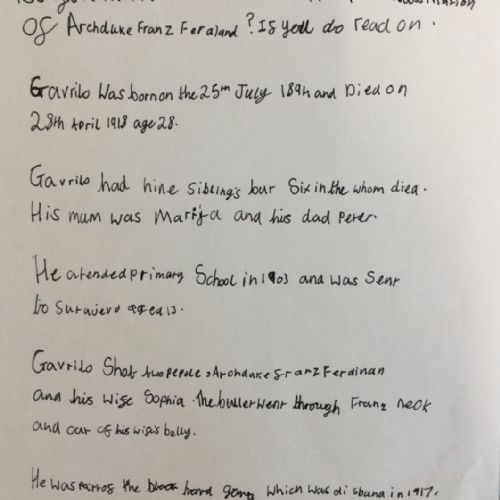 of Archduke Franz Feraland? Is you do read on.
Gavrilo was born on the 25th July 1894 and Died on
28th April 1918 age 28.
Gavrilo had hine sibling's but six in the whom died.
His mum was Marija and his dad Peter.
He atended primary School in 1903 and was Sent
to Surajevo aged 13.
Gavrilo Shot two peple, Archduke Franz Ferdinan
and his wise Sophia. The bullet went through Franz neck
and out of his wise's belly.
He was part os the black hand gang which was disband in 1917.